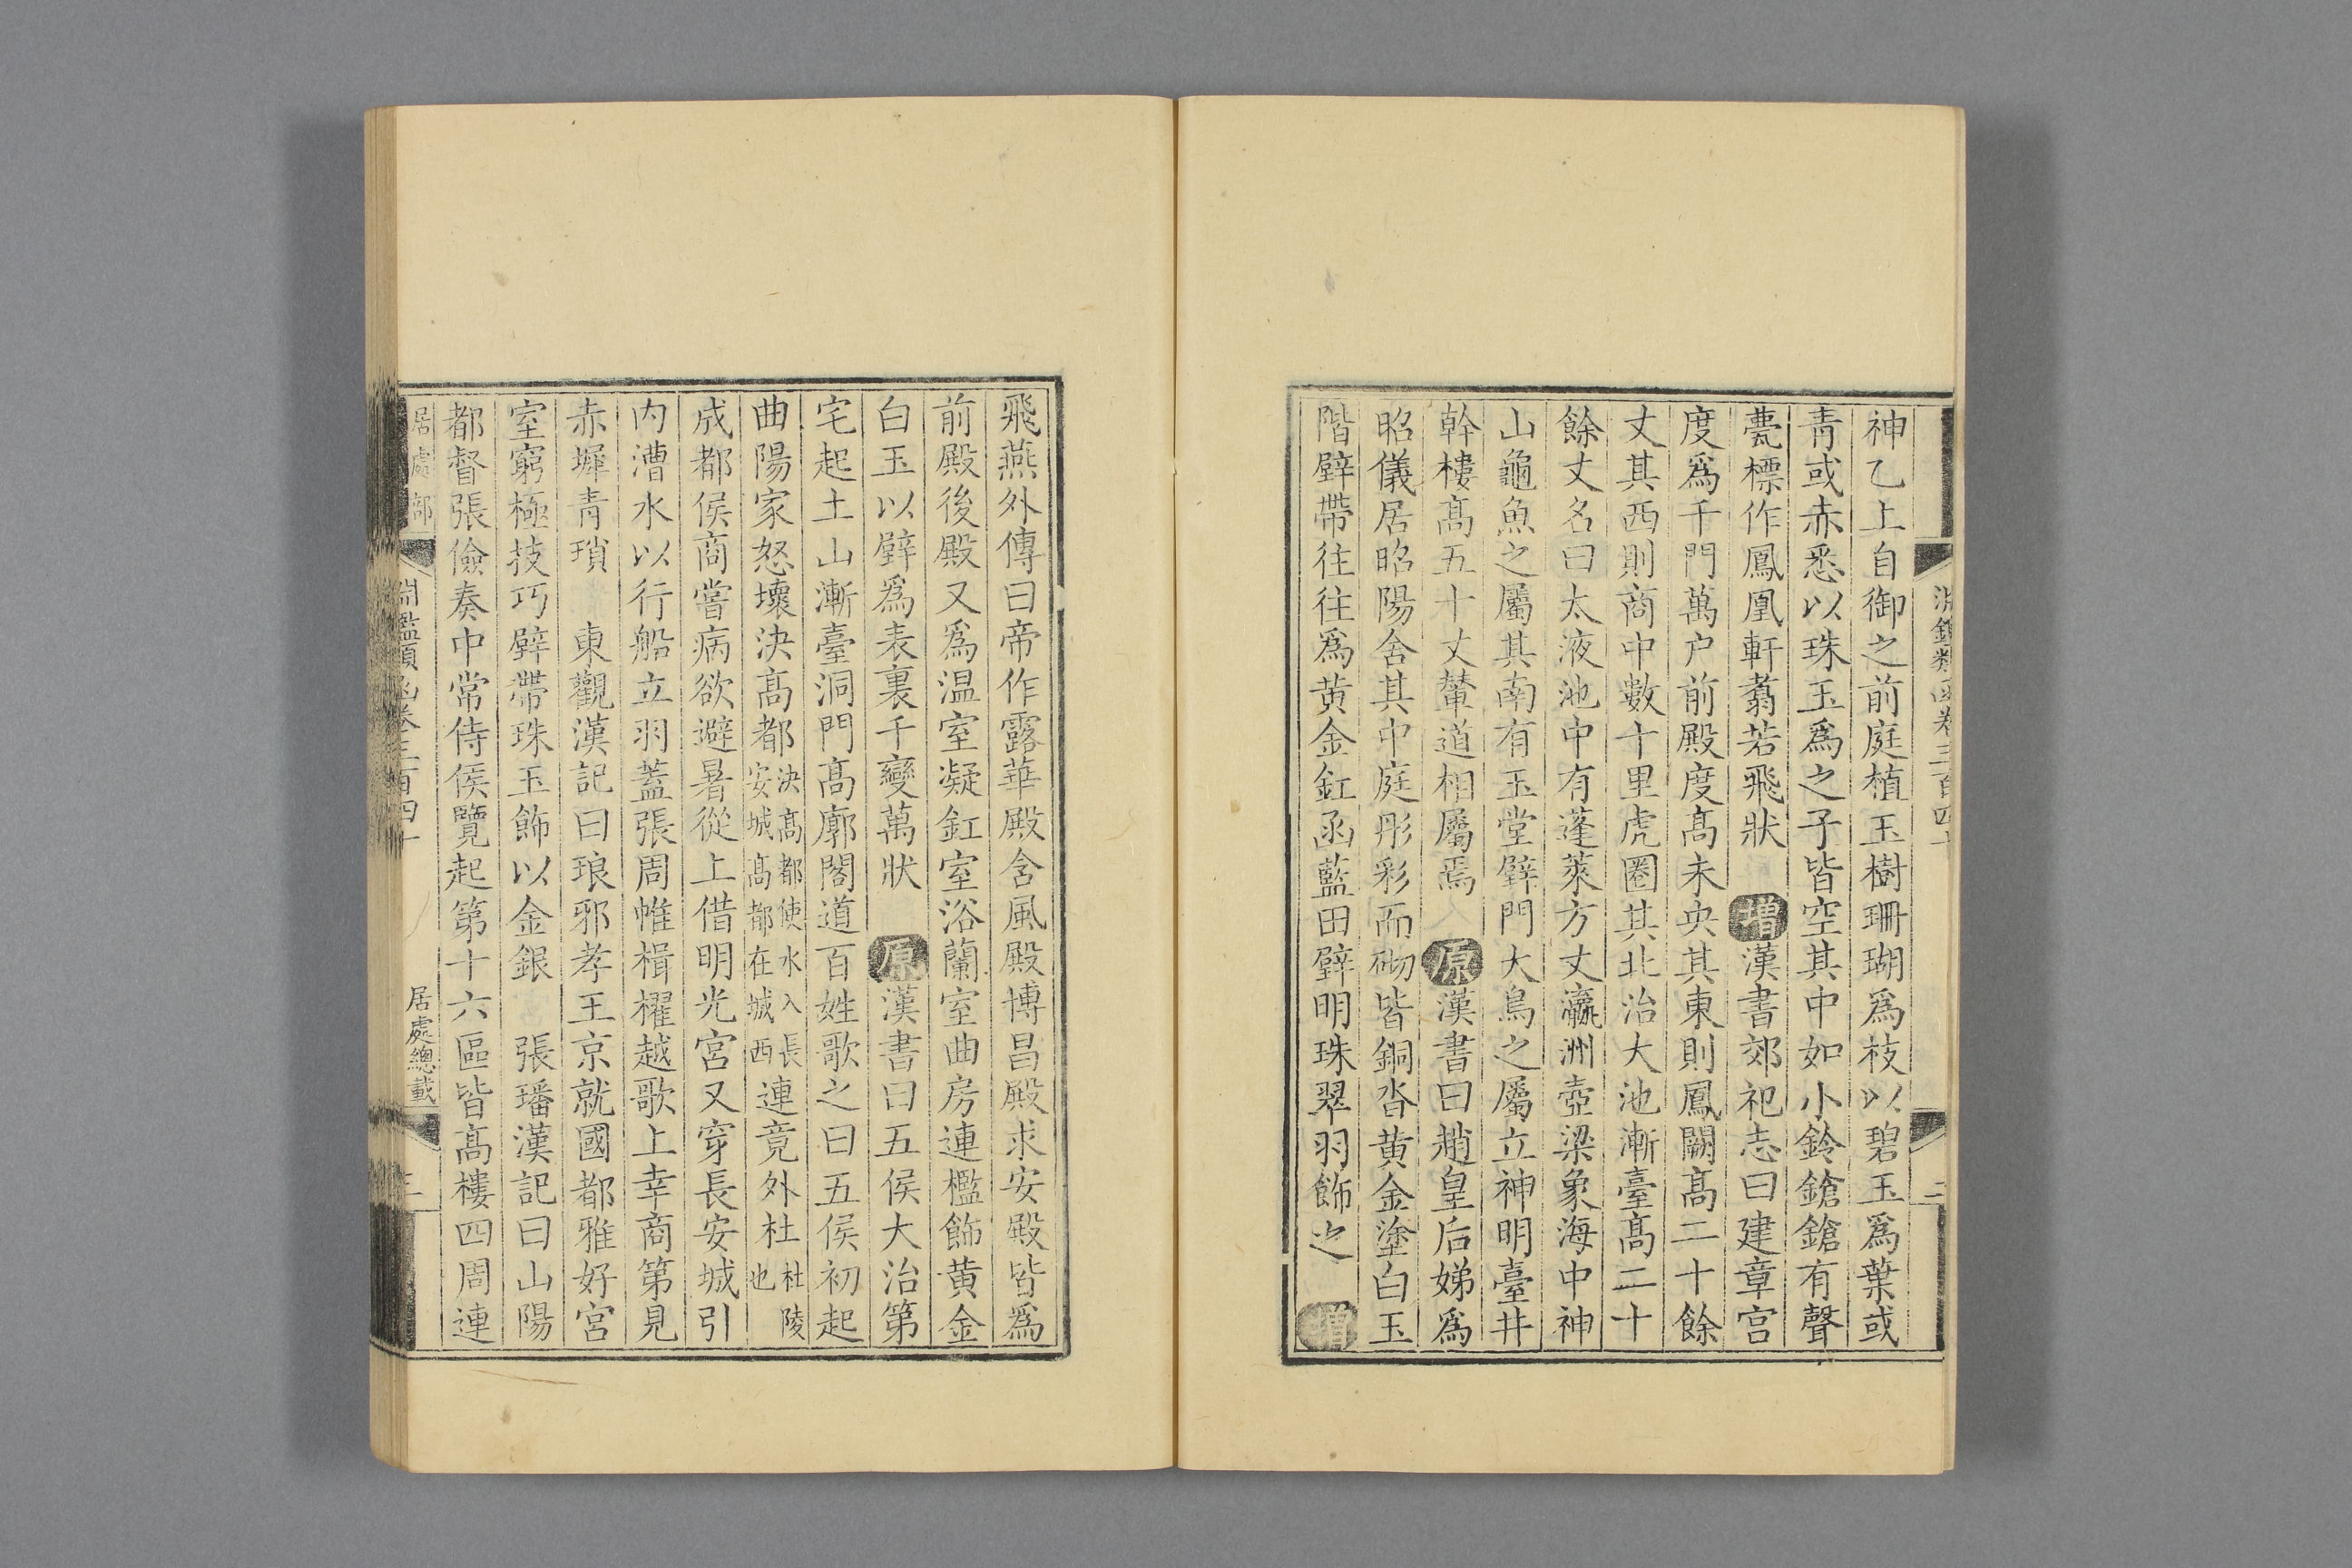 神乙上自御之前庭植玉樹珊瑚爲枝以碧玉爲葉或
青或赤悉以珠玉爲之子皆空其中如小鈴鎗鎗有聲
甍標作鳳凰軒翥若飛狀 增漢書郊祀志曰建章宫
度爲千門萬户前殿度髙未央其東則鳳闕髙二十餘
丈其西則商中數十里虎圈其北治大池漸臺髙二十
餘丈名曰太液池中有蓬萊方丈瀛洲壺梁象海中神
山龜魚之屬其南有玉堂璧門大鳥之屬立神明臺井
幹樓髙五十丈輦道相屬焉 原漢書曰趙皇后娣爲
昭儀居昭陽舍其中庭彤彩而砌皆銅沓黄金塗白玉
階璧帶往往爲黄金釭函藍田璧明珠翠羽飾之 增
飛燕外傳曰帝作露華殿含風殿博昌殿求安殿皆爲
前殿後殿又爲温室凝釭室浴蘭室曲房連檻飾黄金
白玉以璧爲表裏千變萬狀 原漢書曰五侯大治第
宅起土山漸臺洞門髙廓閣道百姓歌之曰五侯初起
曲陽家怒壞決髙都決髙都使水入長安城髙都在城西連竟外杜杜陵也
成都侯商嘗病欲避暑從上借明光宮又穿長安城引
内漕水以行船立羽蓋張周帷楫櫂越歌上幸商第見
赤墀青瑣 東觀漢記曰琅邪孝王京就國都雅好宮
室窮極技巧璧帶珠玉飾以金銀 張璠漢記曰山陽
都督張儉奏中常侍侯覽起第十六區皆髙樓四周連
居處部
淵鑑類函卷三百四十
居處總載